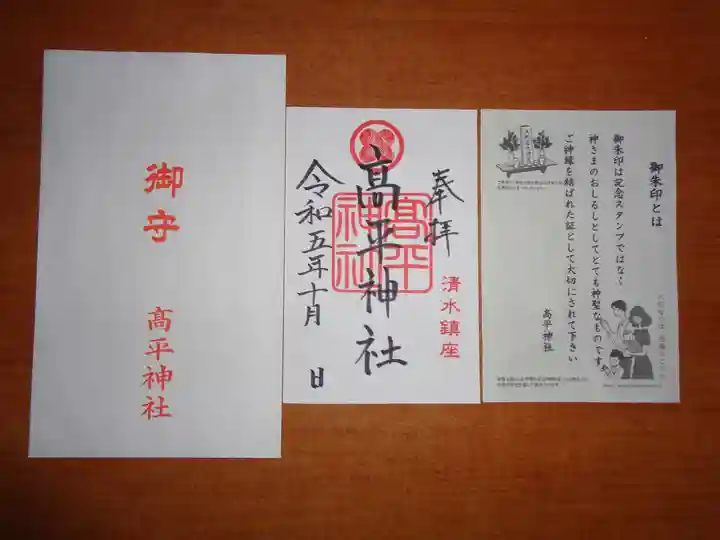 御守
髙平神社
奉拝
清水鎮座
髙平神社
髙平
神社
令和五年十月 日
御朱印とは
御朱印は記念スタンプではなく
神さまのおしるしとしてとても神聖なものです
ご神縁を結ばれた証として大切にされて下さい
髙平神社